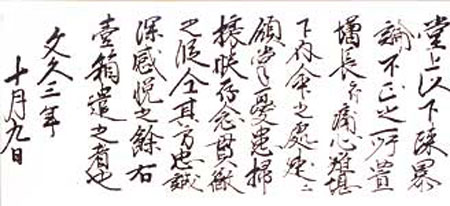 堂上以下疎暴
論不正之所置
増長ニ付痛心難堪
下内命之處速ニ
領掌憂患掃
攘朕存念貫徹
之段全其方忠誠
深感悦之餘右
壹箱遣之者也
文久三年
十月九日